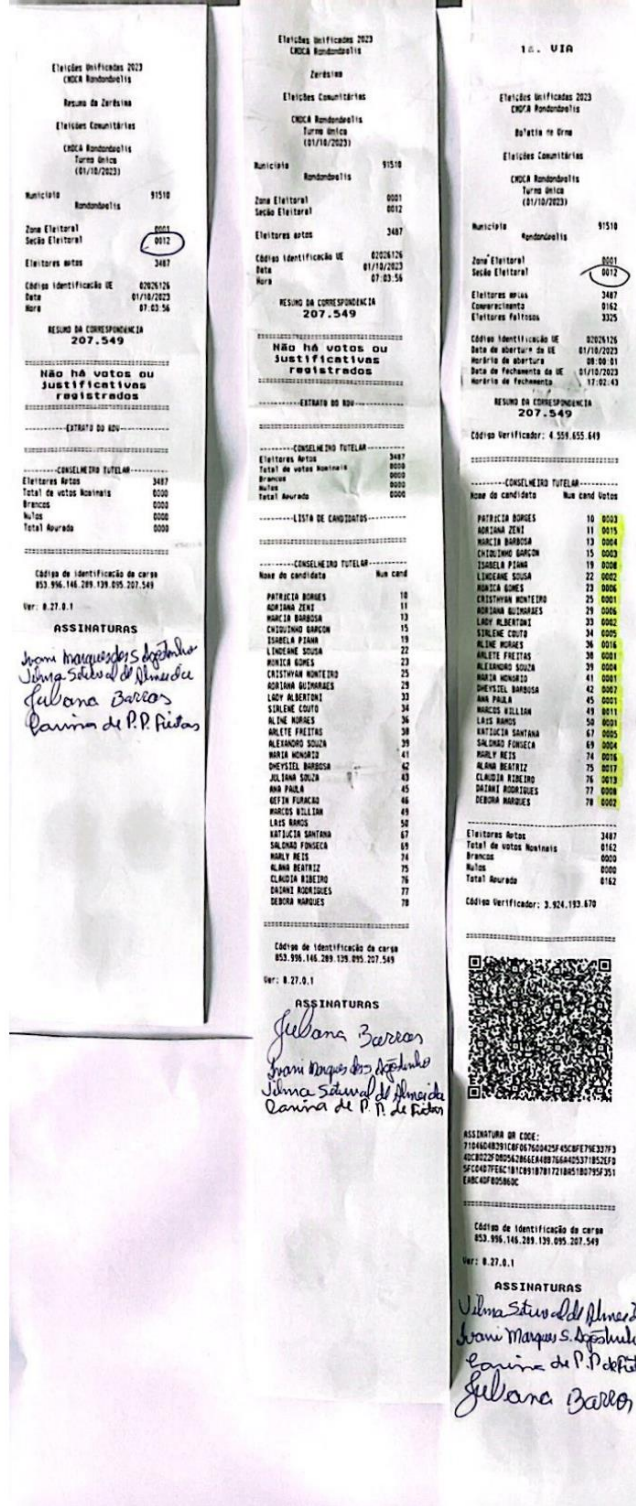 Eleições Unificadas 2023
CMDCA Rondonópolis
Resumo da Zerésima
Eleições Comunitárias
CMDCA Rondonópolis
Turno Único
(01/10/2023)
Município 91510
Rondonópolis
Zona Eleitoral 0001
Seção Eleitoral 0012
Eleitores aptos 3487
Código identificação UE 02026126
Data 01/10/2023
Hora 07:03:56
RESUMO DA CORRESPONDENCIA
207.549
Não há votos ou
justificativas
registrados
EXTRATO DO RDV
CONSELHEIRO TUTELAR
Eleitores Aptos 3487
Total de votos Nominais 0000
Brancos 0000
Nulos 0000
Total Apurado 0000
Código de identificação da carga
853.996.146.289.139.095.207.549
Ver: 8.27.0.1
ASSINATURAS
Ivani Marques dos S. Agostinho
Vilma de Almeida
Juliana Barros
Carina de P.P. Freitas
Eleições Unificadas 2023
CMDCA Rondonópolis
Zerésima
Eleições Comunitárias
CMDCA Rondonópolis
Turno Único
(01/10/2023)
Município 91510
Rondonópolis
Zona Eleitoral 0001
Seção Eleitoral 0012
Eleitores aptos 3487
Código identificação UE 02026126
Data 01/10/2023
Hora 07:03:56
RESUMO DA CORRESPONDENCIA
207.549
Não há votos ou
justificativas
registrados
EXTRATO DO RDV
CONSELHEIRO TUTELAR
Eleitores Aptos 3487
Total de votos Nominais 0000
Brancos 0000
Nulos 0000
Total Apurado 0000
LISTA DE CANDIDATOS
CONSELHEIRO TUTELAR
Nome do candidato Num cand
PATRICIA BORGES 10
ADRIANA ZENI 11
MARCIA BARBOSA 13
CHIQUINHO GARCON 15
ISABELA PIANA 19
LINDEANE SOUSA 22
MONICA GOMES 23
CRISTHYAN MONTEIRO 25
ADRIANA GUIMARAES 29
LADY ALBERTONI 33
SIRLENE COUTO 34
ALINE MORAES 36
ARLETE FREITAS 38
ALEXANDRO SOUZA 39
MARIA HONORIO 41
DHEYSIEL BARBOSA 42
JULIANA SOUZA 43
ANA PAULA 45
GEFIN FURACAO 46
MARCOS WILLIAN 49
LAIS RAMOS 50
KATIUCIA SANTANA 67
SALOMAO FONSECA 69
MARLY REIS 74
ALANA BEATRIZ 75
CLAUDIA RIBEIRO 76
DAIANI RODRIGUES 77
DEBORA MARQUES 78
Código de identificação da carga
853.996.146.289.139.095.207.549
Ver: 8.27.0.1
ASSINATURAS
Juliana Barros
Ivani Marques dos S Agostinho
Vilma de Almeida
Carina de P. P. de Freitas
1a. VIA
Eleições Unificadas 2023
CMDCA Rondonópolis
Boletim de Urna
Eleições Comunitárias
CMDCA Rondonópolis
Turno Único
(01/10/2023)
Município 91510
Rondonópolis
Zona Eleitoral 0001
Seção Eleitoral 0012
Eleitores aptos 3487
Comparecimento 0162
Eleitores Faltosos 3325
Código identificação UE 02026126
Data de abertura da UE 01/10/2023
Horário de abertura 08:00:01
Data de fechamento da UE 01/10/2023
Horário de fechamento 17:02:43
RESUMO DA CORRESPONDENCIA
207.549
Código Verificador: 4.559.655.649
CONSELHEIRO TUTELAR
Nome do candidato Num cand Votos
PATRICIA BORGES 10 0003
ADRIANA ZENI 11 0015
MARCIA BARBOSA 13 0004
CHIQUINHO GARCON 15 0003
ISABELA PIANA 19 0008
LINDEANE SOUSA 22 0002
MONICA GOMES 23 0006
CRISTHYAN MONTEIRO 25 0001
ADRIANA GUIMARAES 29 0006
LADY ALBERTONI 33 0002
SIRLENE COUTO 34 0005
ALINE MORAES 36 0016
ARLETE FREITAS 38 0001
ALEXANDRO SOUZA 39 0004
MARIA HONORIO 41 0001
DHEYSIEL BARBOSA 42 0007
ANA PAULA 45 0001
MARCOS WILLIAN 49 0011
LAIS RAMOS 50 0001
KATIUCIA SANTANA 67 0005
SALOMAO FONSECA 69 0004
MARLY REIS 74 0016
ALANA BEATRIZ 75 0017
CLAUDIA RIBEIRO 76 0013
DAIANI RODRIGUES 77 0008
DEBORA MARQUES 78 0002
Eleitores Aptos 3487
Total de votos Nominais 0162
Brancos 0000
Nulos 0000
Total Apurado 0162
Código Verificador: 3.924.193.670
ASSINATURA QR CODE:
Código de identificação da carga
853.996.146.289.139.095.207.549
Ver: 8.27.0.1
ASSINATURAS
Vilma de
Ivani Marques S. Agostinho
Carina de P.P de
Juliana Barros